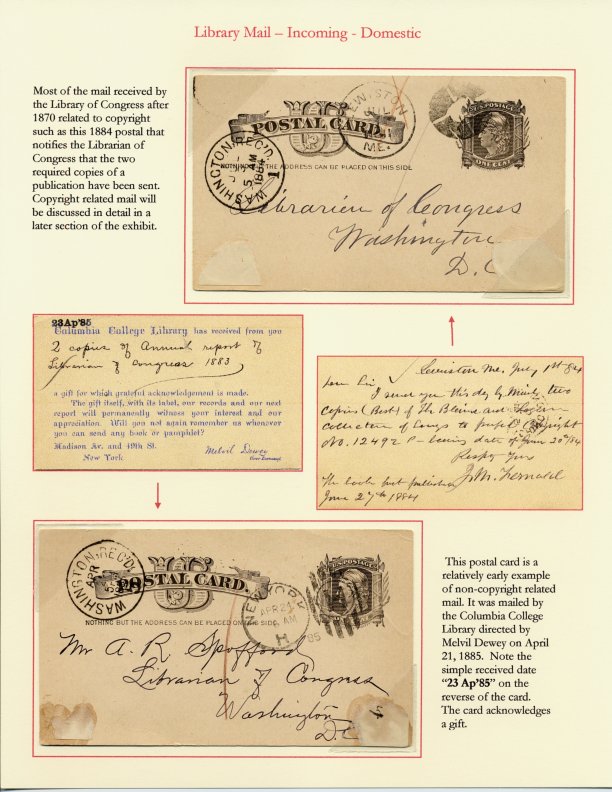 Library Mail – Incoming - Domestic
Most of the mail received by
the Library of Congress after
1870 related to copyright
such as this 1884 postal that
notifies the Librarian of
Congress that the two
required copies of a
publication have been sent.
Copyright related mail will
be discussed in detail in a
later section of the exhibit.
LEWISTON
ME.
POSTAL CARD.
U.S. POSTAGE
ONE CENT
NOTHING BUT THE ADDRESS CAN BE PLACED ON THIS SIDE
WASHINGTON REC'D.
5 AM
1884
1
Librarian of Congress
Washington
D.C
23Ap'85
Columbia College Library has received from you
2 copies of Annual report of
Librarian of Congress 1883
a gift for which grateful acknowledgement is made.
The gift itself, with its label, our records and our next
report will permanently witness your interest and our
appreciation. Will you not again remember us whenever
you can send any book or pamphlet?
Madison Av. and 49th St.
New York
Melvil Dewey
Lewiston Me, July 1st 84
Dear Sir
I send you this day by Mail two
copies (Best) of The Blaine and Logan
collection of Songs to perfect Copyright
No. 12492 P bearing date of June 20th/84
Respy Yours
J.M. Fernald
The book but published
June 27th 1884
WASHINGTON REC'D.
APR
POSTAL CARD.
U.S. POSTAGE
NOTHING BUT THE ADDRESS CAN BE PLACED ON THIS SIDE
NEW YORK
APR 21
AM
85
H
Mr A. R. Spofford
Librarian of Congress
Washington
D.C
This postal card is a
relatively early example
of non-copyright related
mail. It was mailed by
the Columbia College
Library directed by
Melvil Dewey on April
21, 1885. Note the
simple received date
“23 Ap’85” on the
reverse of the card.
The card acknowledges
a gift.